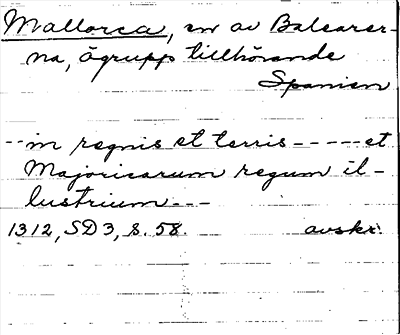 Mallorca, en av Balearer-
na, ögrupp tillhörande
Spanien
--in regnis et terris-----et
Majoricarum regum il-
lustrium---
1312, SD 3, s. 58. avskr.